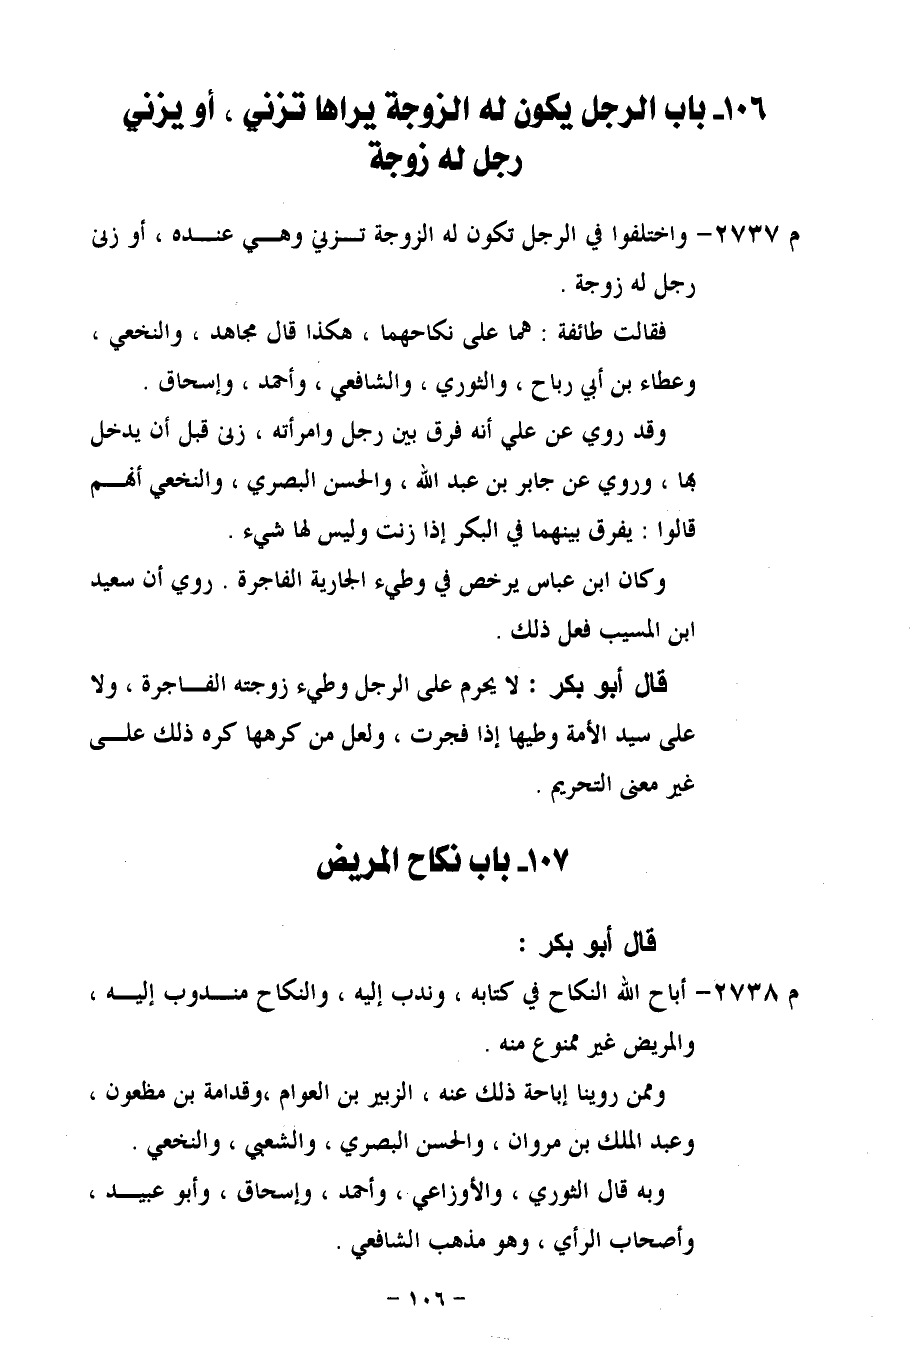 ١٠٦ـ باب الرجل يكون له الزوجة يراها تزني ، أو يزني
رجل له زوجة
م ٢٧٣٧– واختلفوا في الرجل تكون له الزوجة تــزني وهــي عنــده ، أو زنى
رجل له زوجة .
فقالت طائفة : هما على نكاحهما ، هكذا قال مجاهد ، والنخعي ،
وعطاء بن أبي رباح ، والثوري ، والشافعي ، وأحمد ، وإسحاق .
وقد روي عن علي أنه فرق بين رجل وامرأته ، زنى قبل أن يدخل
بها ، وروي عن جابر بن عبد الله ، والحسن البصري ، والنخعي أنهــم
قالوا : يفرق بينهما في البكر إذا زنت وليس لها شيء .
وكان ابن عباس يرخص في وطيء الجارية الفاجرة . روي أن سعيد
ابن المسيب فعل ذلك .
قال أبو بكر : لا يحرم على الرجل وطيء زوجته الفــاجرة ، ولا
على سيد الأمة وطيها إذا فجرت ، ولعل من كرهها كره ذلك علــى
غير معنى التحريم .
١٠٧ـ باب نكاح المريض
قال أبو بكر :
م ٢٧٣٨– أباح الله النكاح في كتابه ، وندب إليه ، والنكاح منــدوب إليــه ،
والمريض غير ممنوع منه .
وممن روينا إباحة ذلك عنه ، الزبير بن العوام ،وقدامة بن مظعون ،
وعبد الملك بن مروان ، والحسن البصري ، والشعبي ، والنخعي .
وبه قال الثوري ، والأوزاعي ، وأحمد ، وإسحاق ، وأبو عبيــد ،
وأصحاب الرأي ، وهو مذهب الشافعي .
– ١٠٦ –